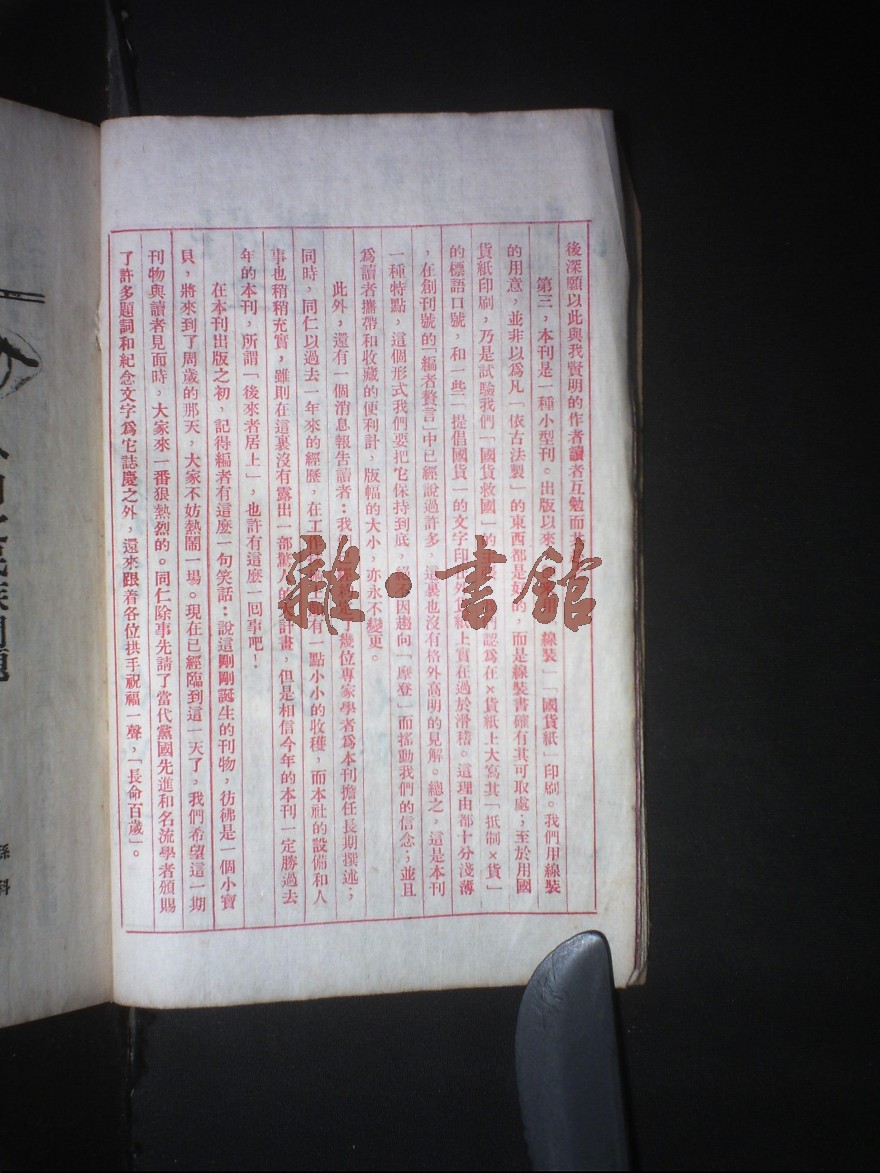 後深願以此與我賢明的作者讀者互勉而
第三，本刊是一種小型刊。出版以來 線裝」「國貨紙」印刷。我們用線裝
的用意，並非以為凡「依古法製」的東西都是好的，而是線裝書確有其可取處；至於用國
貨紙印刷，乃是試驗我們「國貨救國」的 認為在×貨紙上大寫其「抵制×貨」
的標語口號，和一些「提倡國貨」的文字印 上實在過於滑稽。這理由都十分淺薄
，在創刊號的「編者贅言」中已經說過許多，這裏也沒有格外高明的見解。總之，這是本刊
一種特點，這個形式我們要把它保持到底， 因趨向「摩登」而搖動我們的信念；並且
為讀者攜帶和收藏的便利計，版幅的大小，亦永不變更。
此外，還有一個消息報告讀者：我 幾位專家學者為本刊擔任長期撰述；
同時，同仁以過去一年來的經歷，在工 有一點小小的收穫，而本社的設備和人
事也稍稍充實，雖則在這裏沒有露出一部驚人的 計畫，但是相信今年的本刊一定勝過去
年的本刊，所謂「後來者居上」，也許有這麼一回事吧！
在本刊出版之初，記得編者有這麼一句笑話：說這剛剛誕生的刊物，彷彿是一個小寶
貝，將來到了周歲的那天，大家不妨熱鬧一場。現在已經臨到這一天了，我們希望這一期
刊物與讀者見面時，大家來一番狠熱烈的。同仁除事先請了當代黨國先進和名流學者頒賜
了許多題詞和紀念文字為它誌慶之外，還來跟着各位拱手祝福一聲，「長命百歲」。
雜·書館
民族問題
孫科